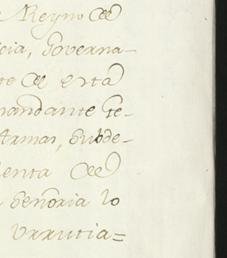 Reyno de
cia, Governa-
te de esta
mandante Ge-
Armas, Subde-
enta de
Senoria lo
Urrutia=